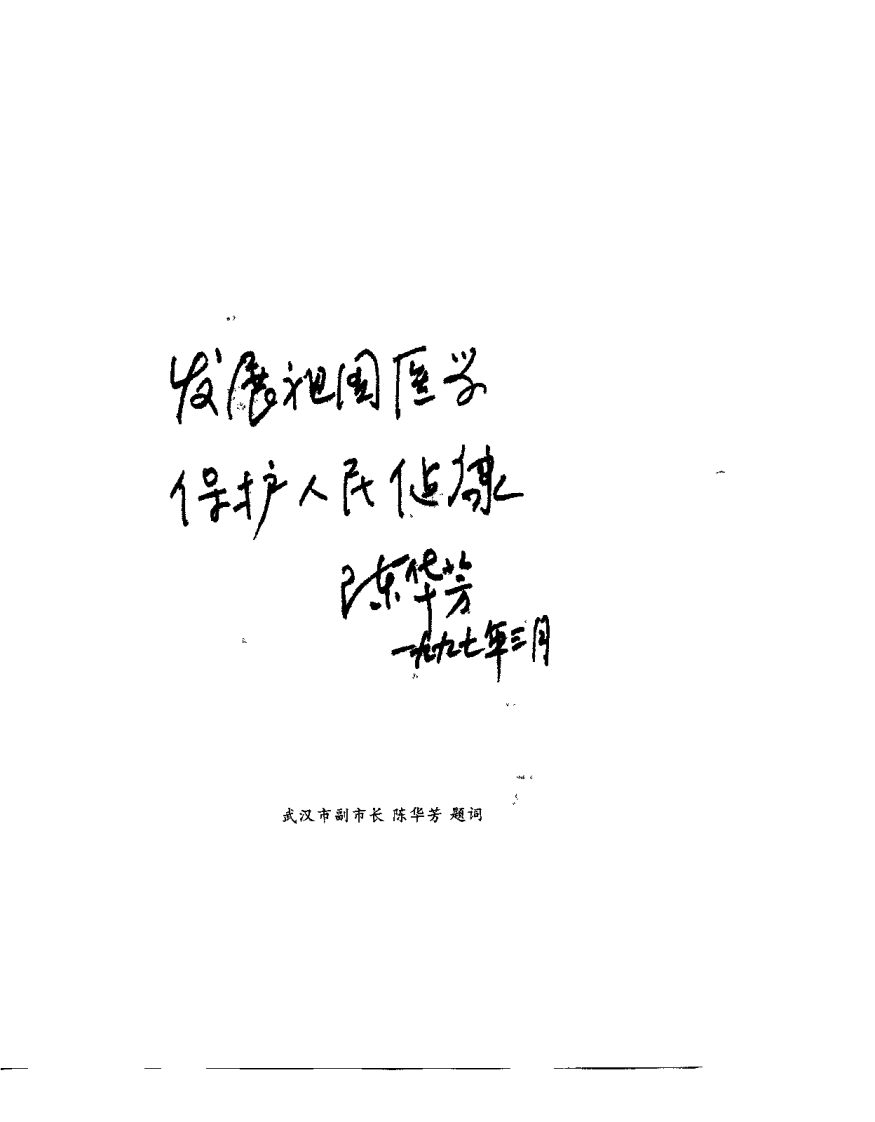 发展祖国医学
保护人民健康
陈华芳
一九九七年三月
武汉市副市长 陈华芳 题词